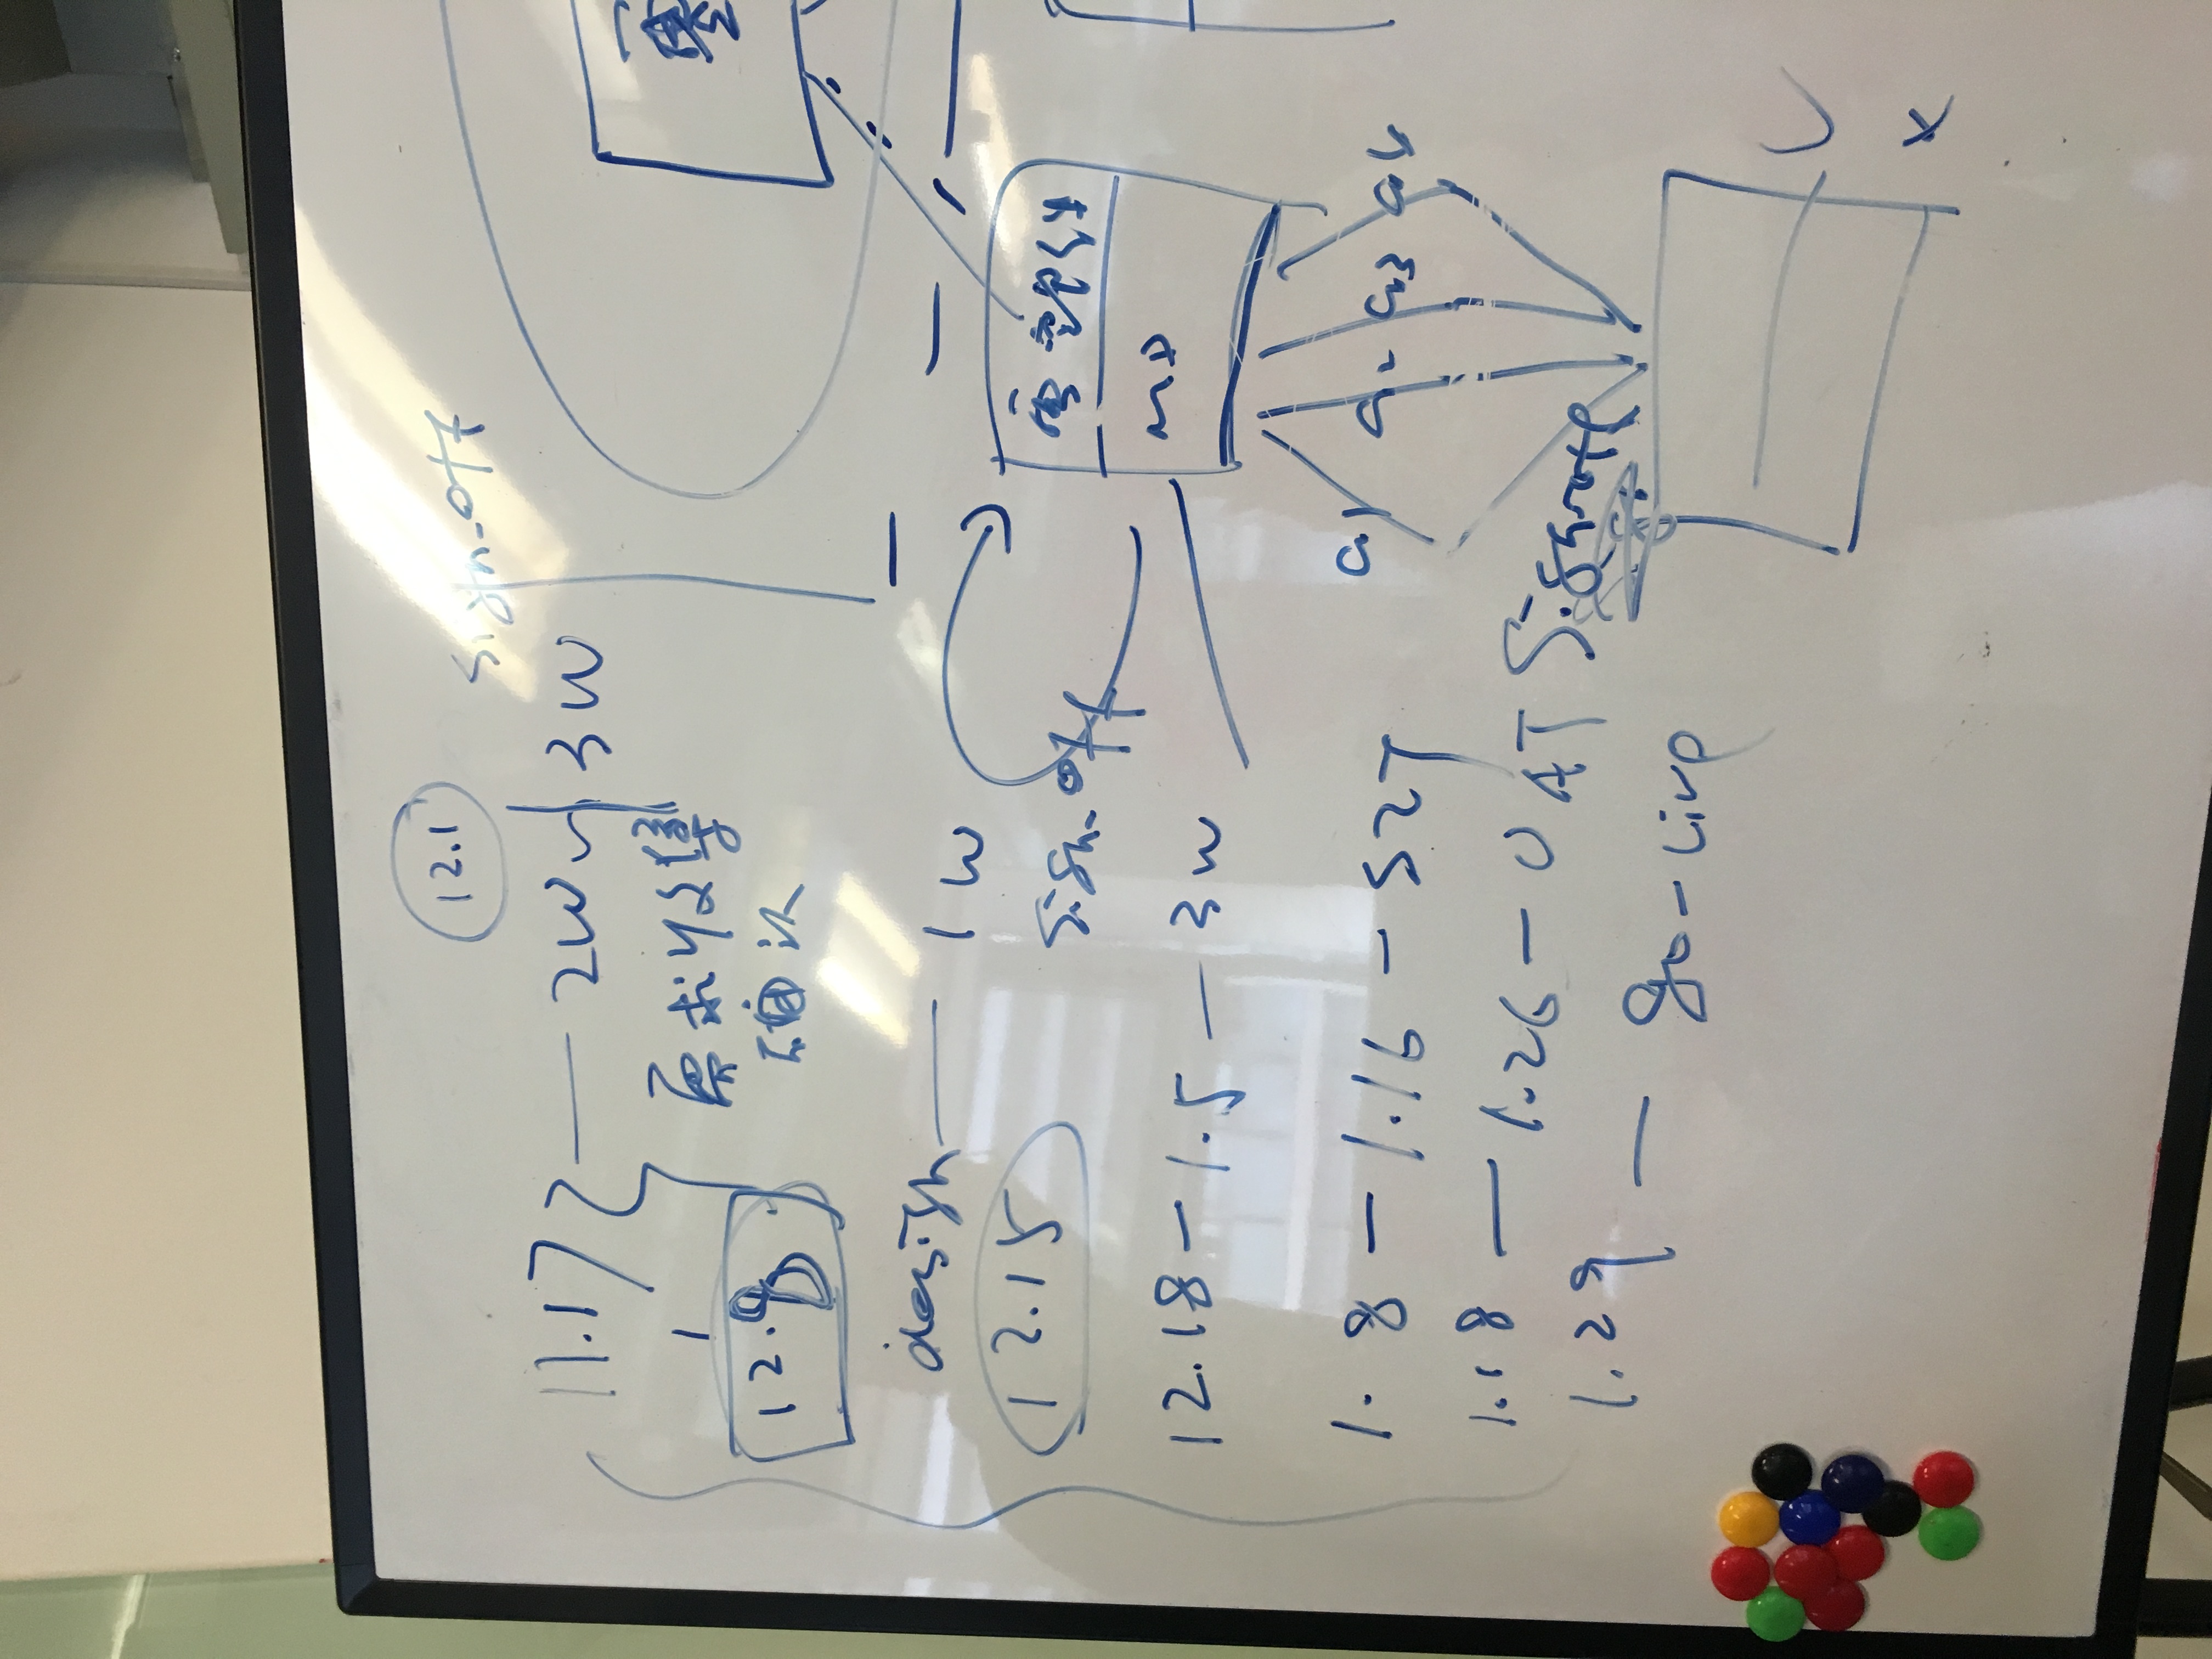 12.1
sign-off
11.17 — 2W~3W
需求收集
确认
12.8
design — 1W
12.15
sign-off
12.18 — 1.5 — 3W
1.8 — 1.16 — SIT
1.18 — 1.26 — UAT Sign-off
1.29 — go-live
零部件
MD
a1 a2 a3 a4